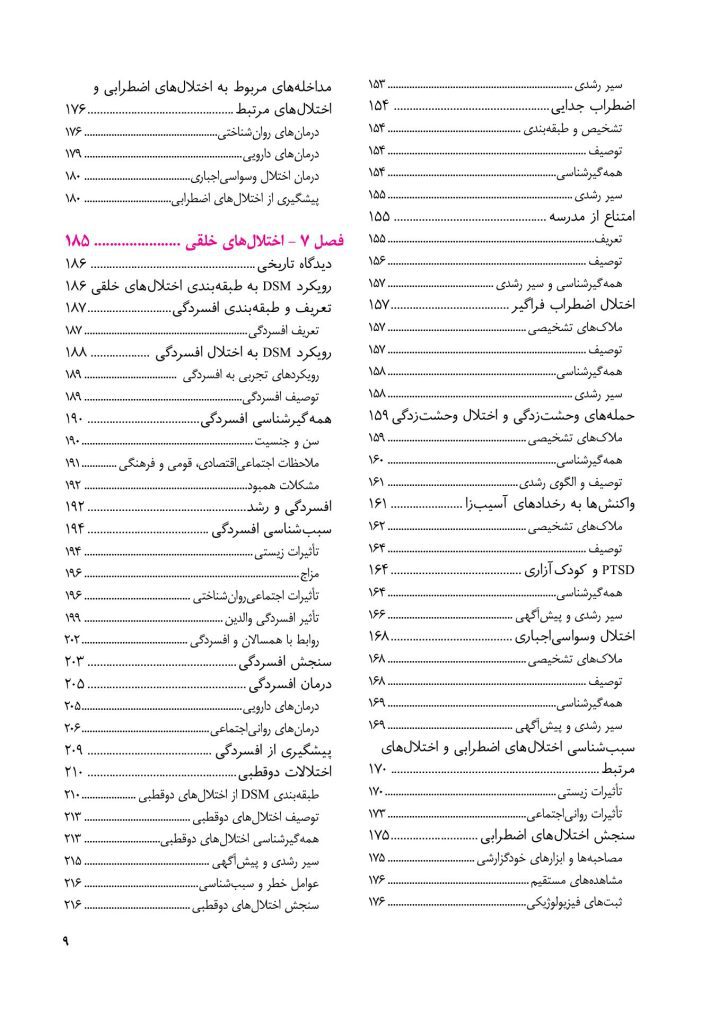 سیر رشدی ........ ۱۵۳
اضطراب جدایی ........ ۱۵۴
تشخیص و طبقه‌بندی ........ ۱۵۴
توصیف ........ ۱۵۴
همه‌گیرشناسی ........ ۱۵۴
سیر رشدی ........ ۱۵۵
امتناع از مدرسه ........ ۱۵۵
تعریف ........ ۱۵۵
توصیف ........ ۱۵۶
همه‌گیرشناسی و سیر رشدی ........ ۱۵۷
اختلال اضطراب فراگیر ........ ۱۵۷
ملاک‌های تشخیصی ........ ۱۵۷
توصیف ........ ۱۵۷
همه‌گیرشناسی ........ ۱۵۸
سیر رشدی ........ ۱۵۸
حمله‌های وحشت‌زدگی و اختلال وحشت‌زدگی ۱۵۹
ملاک‌های تشخیصی ........ ۱۵۹
همه‌گیرشناسی ........ ۱۶۰
توصیف و الگوی رشدی ........ ۱۶۱
واکنش‌ها به رخدادهای آسیب‌زا ........ ۱۶۱
ملاک‌های تشخیصی ........ ۱۶۲
توصیف ........ ۱۶۴
PTSD و کودک‌آزاری ........ ۱۶۴
همه‌گیرشناسی ........ ۱۶۴
سیر رشدی و پیش‌آگهی ........ ۱۶۶
اختلال وسواسی‌اجباری ........ ۱۶۸
ملاک‌های تشخیصی ........ ۱۶۸
توصیف ........ ۱۶۸
همه‌گیرشناسی ........ ۱۶۹
سیر رشدی و پیش‌آگهی ........ ۱۶۹
سبب‌شناسی اختلال‌های اضطرابی و اختلال‌های
مرتبط ........ ۱۷۰
تأثیرات زیستی ........ ۱۷۰
تأثیرات روانی‌اجتماعی ........ ۱۷۳
سنجش اختلال‌های اضطرابی ........ ۱۷۵
مصاحبه‌ها و ابزارهای خودگزارشی ........ ۱۷۵
مشاهده‌های مستقیم ........ ۱۷۶
ثبت‌های فیزیولوژیکی ........ ۱۷۶
مداخله‌های مربوط به اختلال‌های اضطرابی و
اختلال‌های مرتبط ........ ۱۷۶
درمان‌های روان‌شناختی ........ ۱۷۶
درمان‌های دارویی ........ ۱۷۹
درمان اختلال وسواسی‌اجباری ........ ۱۸۰
پیشگیری از اختلال‌های اضطرابی ........ ۱۸۰
فصل ۷ – اختلال‌های خلقی ........ ۱۸۵
دیدگاه تاریخی ........ ۱۸۶
رویکرد DSM به طبقه‌بندی اختلال‌های خلقی ۱۸۶
تعریف و طبقه‌بندی افسردگی ........ ۱۸۷
تعریف افسردگی ........ ۱۸۷
رویکرد DSM به اختلال افسردگی ........ ۱۸۸
رویکردهای تجربی به افسردگی ........ ۱۸۹
توصیف افسردگی ........ ۱۸۹
همه‌گیرشناسی افسردگی ........ ۱۹۰
سن و جنسیت ........ ۱۹۰
ملاحظات اجتماعی‌اقتصادی، قومی و فرهنگی ........ ۱۹۱
مشکلات همبود ........ ۱۹۲
افسردگی و رشد ........ ۱۹۲
سبب‌شناسی افسردگی ........ ۱۹۴
تأثیرات زیستی ........ ۱۹۴
مزاج ........ ۱۹۶
تأثیرات اجتماعی‌روان‌شناختی ........ ۱۹۶
تأثیر افسردگی والدین ........ ۱۹۹
روابط با همسالان و افسردگی ........ ۲۰۲
سنجش افسردگی ........ ۲۰۳
درمان افسردگی ........ ۲۰۵
درمان‌های دارویی ........ ۲۰۵
درمان‌های روانی‌اجتماعی ........ ۲۰۶
پیشگیری از افسردگی ........ ۲۰۹
اختلالات دوقطبی ........ ۲۱۰
طبقه‌بندی DSM از اختلال‌های دوقطبی ........ ۲۱۰
توصیف اختلال‌های دوقطبی ........ ۲۱۳
همه‌گیرشناسی اختلال‌های دوقطبی ........ ۲۱۳
سیر رشدی و پیش‌آگهی ........ ۲۱۵
عوامل خطر و سبب‌شناسی ........ ۲۱۶
سنجش اختلال‌های دوقطبی ........ ۲۱۶
۹